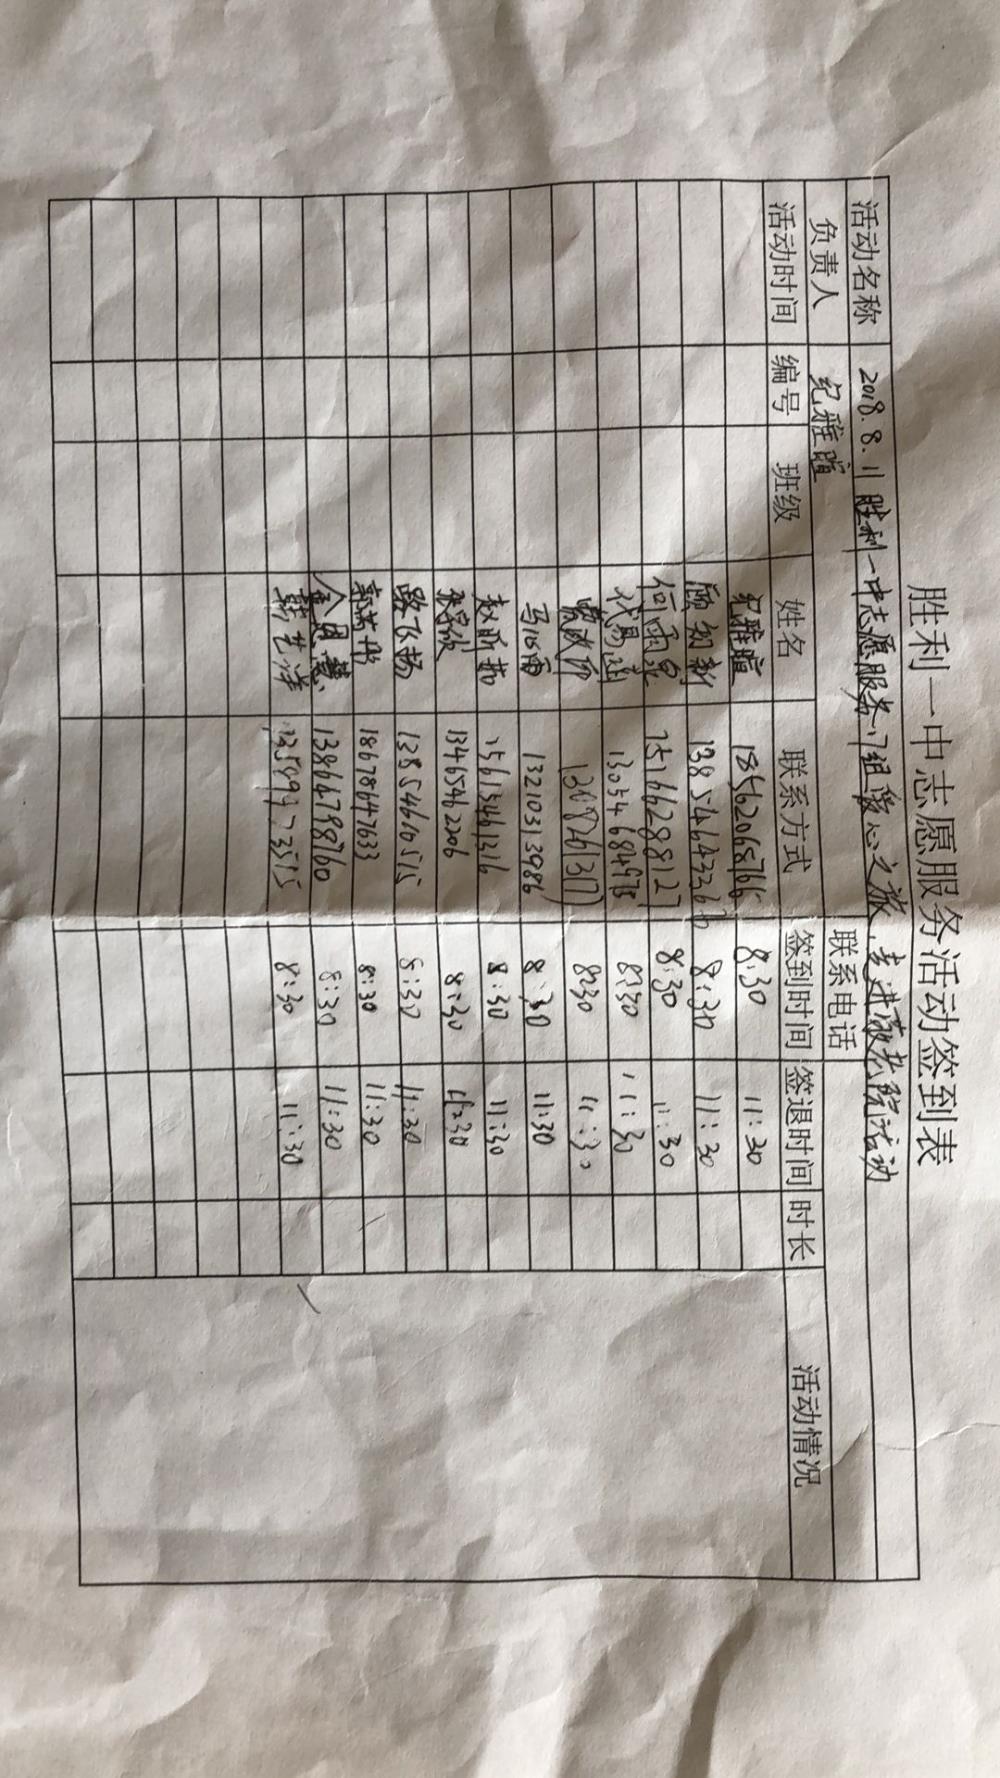 胜利一中志愿服务活动签到表
活动名称 2018.8.11 胜利一中志愿服务17组爱心之旅,走进敬老院活动
负责人 纪雅暄 联系电话
活动时间 编号 班级 姓名 联系方式 签到时间 签退时间 时长 活动情况
纪雅暄 18562068766 8:30 11:30
13854643360 8:30 11:30
何雨泉 15166288127 8:30 11:30
13054684978 8:30 11:30
8:30 11:30
马沁雨 13210313986 8:30 11:30
15613461316 8:30 11:30
13465462206 8:30 11:30
路飞扬 13854610515 8:30 11:30
18678647633 8:30 11:30
13866798760 8:30 11:30
韩艺洋 8:30 11:30